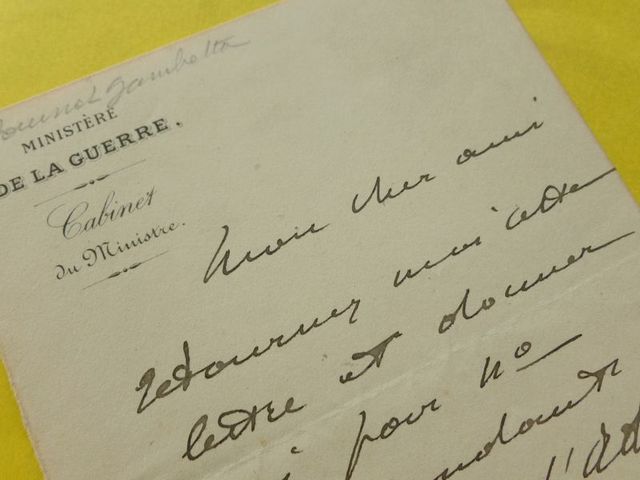 Gambetta
MINISTÈRE
DE LA GUERRE.
Cabinet
du Ministre.
Mon cher ami
retournez moi cette
lettre et donner
pour no